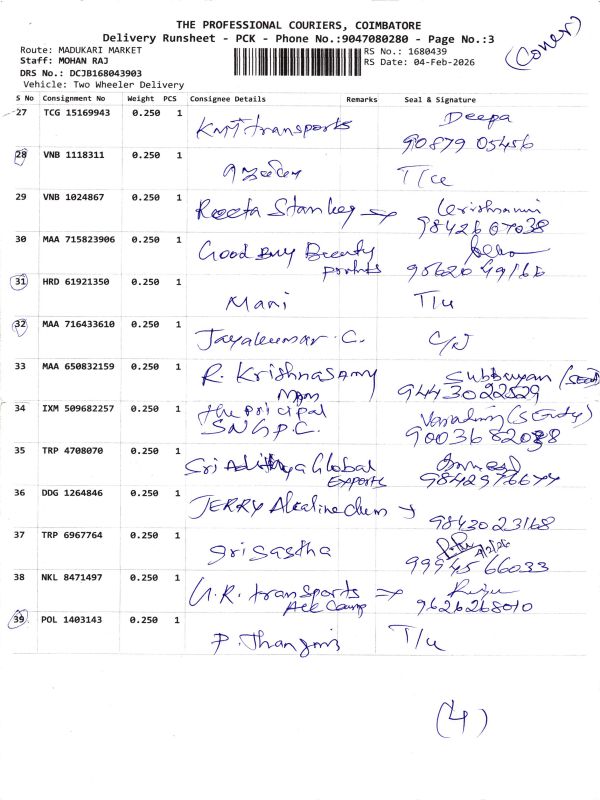 THE PROFESSIONAL COURIERS, COIMBATORE
Delivery Runsheet - PCK - Phone No.:9047080280 - Page No.:3
(Coner)
Route: MADUKARI MARKET
Staff: MOHAN RAJ
DRS No.: DCJB168043903
Vehicle: Two Wheeler Delivery
RS No.: 1680439
RS Date: 04-Feb-2026
S No Consignment No Weight PCS Consignee Details Remarks Seal & Signature
27 TCG 15169943 0.250 1 KMT transports Deepa
90879 05456
28 VNB 1118311 0.250 1 T/u
29 VNB 1024867 0.250 1 Reeta Stanley
9842607038
30 MAA 715823906 0.250 1 Good Buy Beauty
31 HRD 61921350 0.250 1 Mani T/u
32 MAA 716433610 0.250 1 Jayakumar. C.
33 MAA 650832159 0.250 1 R. Krishnasamy Subbayan
9443022529
34 IXM 509682257 0.250 1 the principal
SNGPC.
35 TRP 4708070 0.250 1 Sri Adithya Global
Exports
36 DDG 1264846 0.250 1 JERRY Alkaline Chem
9843023168
37 TRP 6967764 0.250 1 Sri Sastha 4/2/26
99945 66033
38 NKL 8471497 0.250 1 U.R. transports
9626268010
39 POL 1403143 0.250 1 T/u
(4)